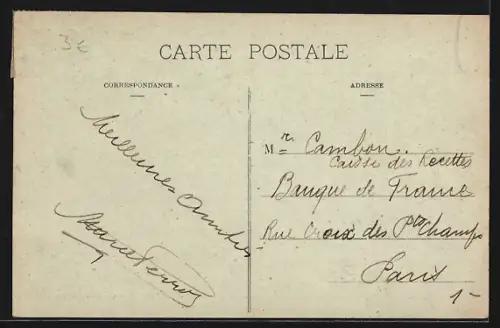 3€
CARTE POSTALE
CORRESPONDANCE
ADRESSE
Meilleures Amitiés
Mr Cambon.
Caisse des Recettes
Banque de France
Rue Croix des Pts Champs
Paris
1-